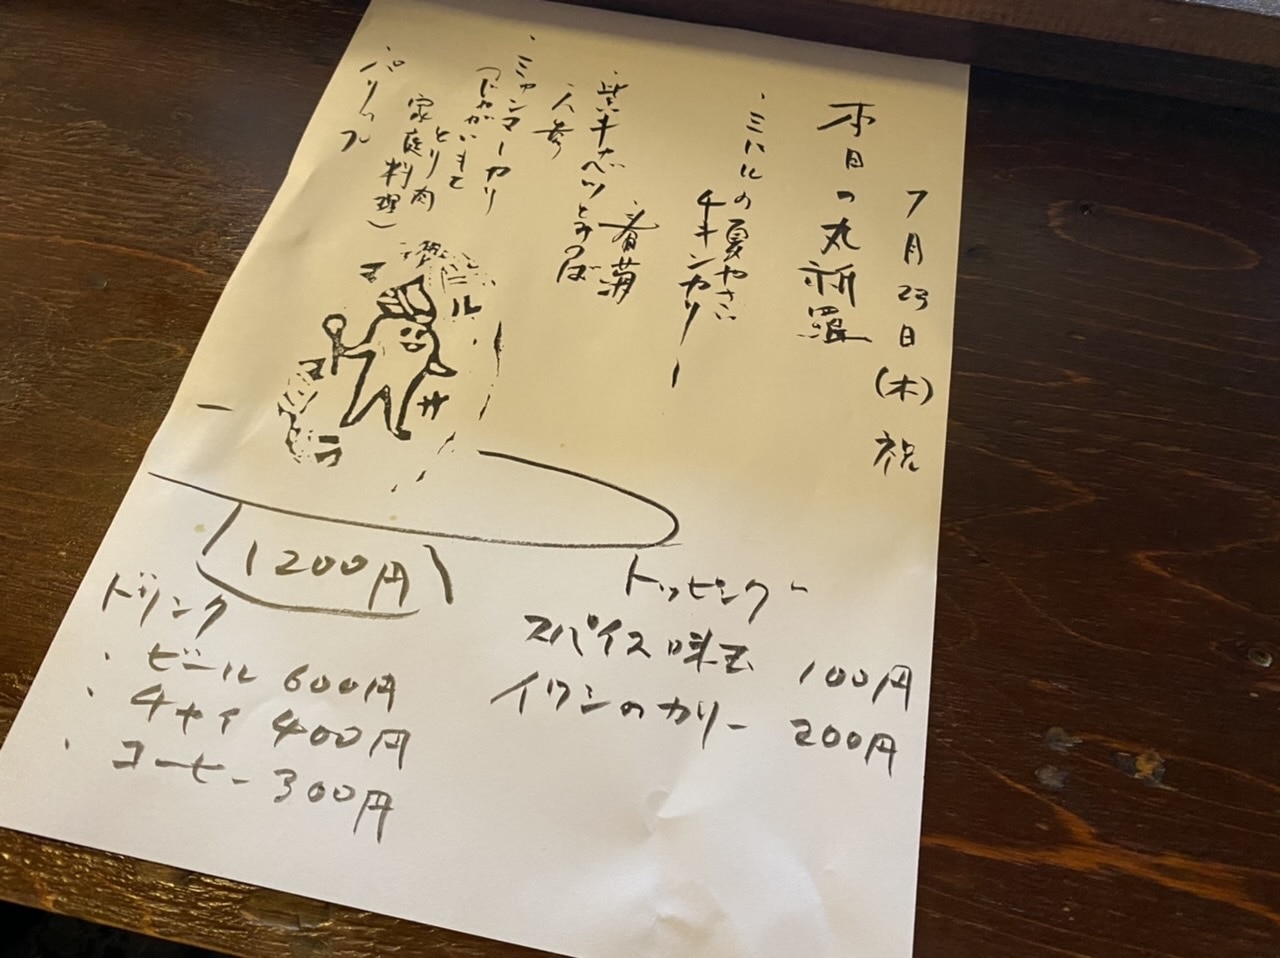 7月23日(木)祝
本日の丸新羅
・ミハルの夏やさい
チキンカリー
・紫キャベツとみつば
・人参
・ミャンマーカリー
(じゃがいもと
とり肉
家庭料理)
・パリップ
1200円
トッピング
スパイス味玉 100円
イワシのカリー 200円
ドリンク
・ビール 600円
・チャイ 400円
・コーヒー 300円